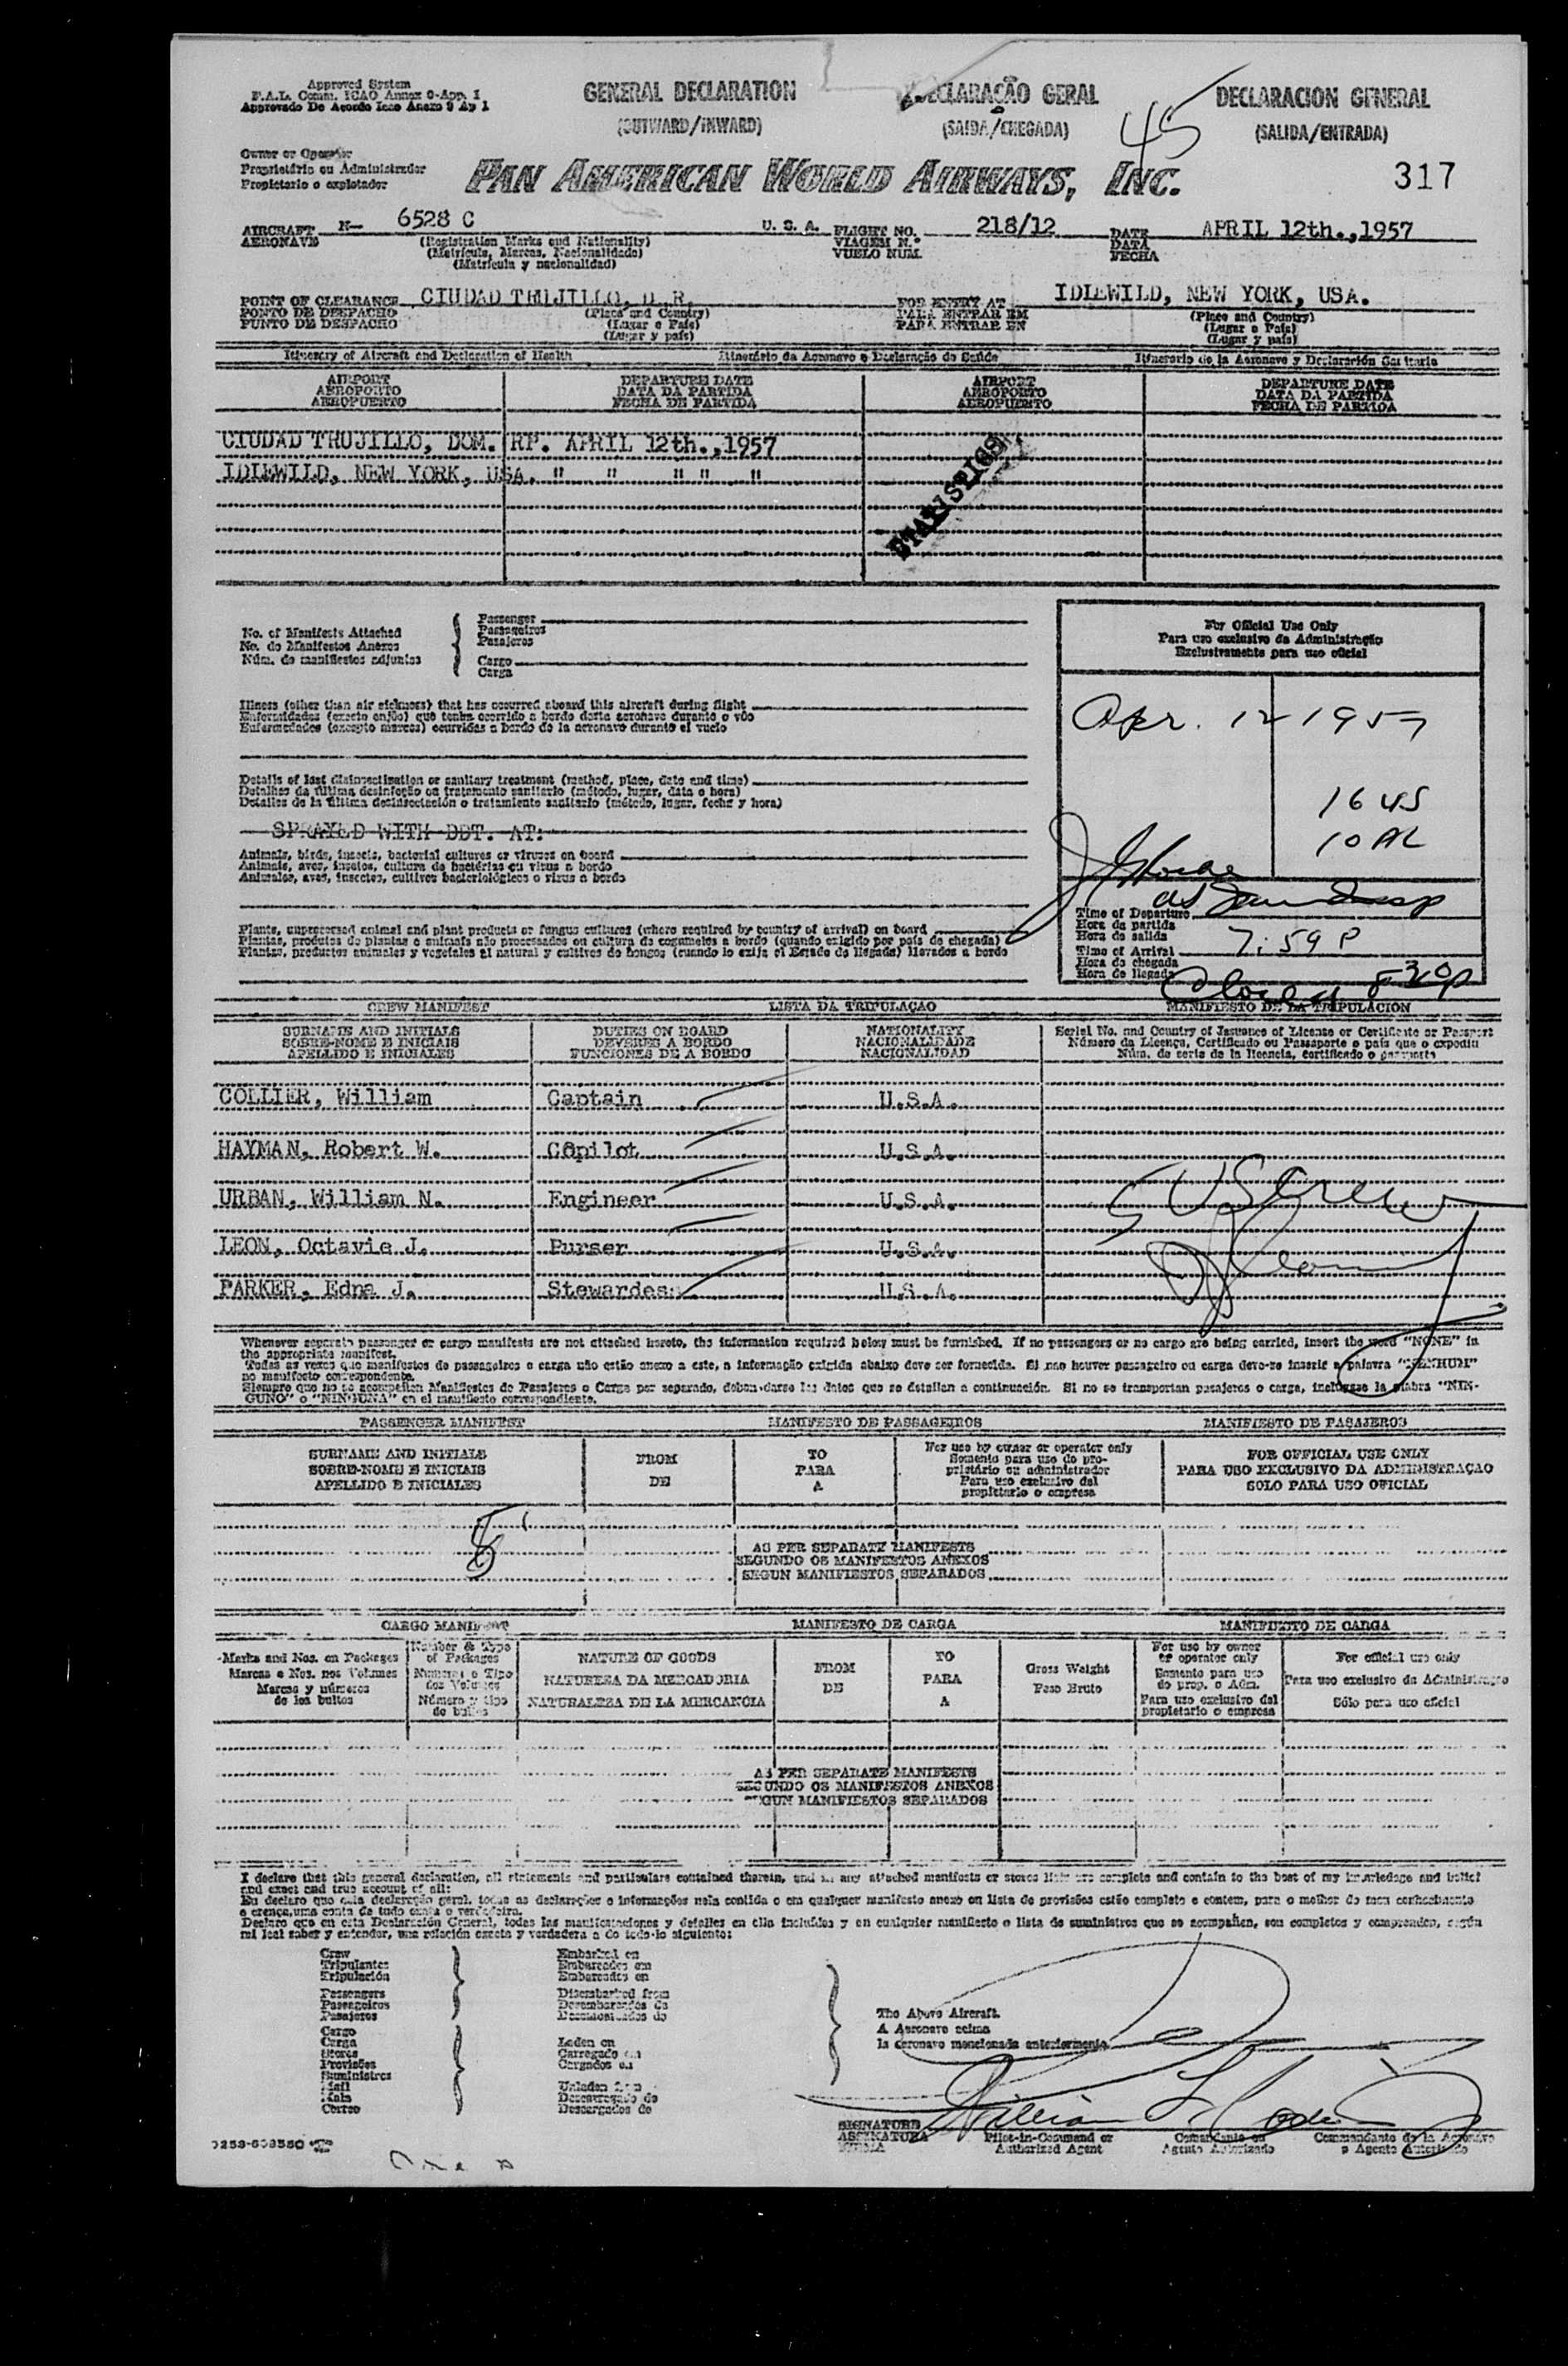 Approved System
F.A.L. Comm. ICAO Annex 9-App. 1
Approvado De Acordo Icao Anexo 9 Ap 1
GENERAL DECLARATION
(OUTWARD/INWARD)
DECLARAÇÃO GERAL
(SAIDA/CHEGADA)
DECLARACION GENERAL
(SALIDA/ENTRADA)
45
Owner or Operator
Proprietário ou Administrador
Propietario o explotador
PAN AMERICAN WORLD AIRWAYS, INC.
317
AIRCRAFT N- 6528 C U. S. A. FLIGHT NO. 218/12 DATE APRIL 12th.,1957
AERONAVE (Registration Marks and Nationality) VIAGEM N.º DATA
(Matricula, Marcas, Nacionalidade) VUELO NUM. FECHA
(Matricula y nacionalidad)
POINT OF CLEARANCE CIUDAD TRUJILLO, D.R. FOR ENTRY AT IDLEWILD, NEW YORK, USA.
PONTO DE DESPACHO (Place and Country) PARA ENTRAR EM (Place and Country)
PUNTO DE DESPACHO (Lugar e País) PARA ENTRAR EN (Lugar e País)
(Lugar y país) (Lugar y país)
Itinerary of Aircraft and Declaration of Health Itinerário da Aeronave e Declaração de Saúde Itinerario de la Aeronave y Declaración Sanitaria
AIRPORT DEPARTURE DATE AIRPORT DEPARTURE DATE
AEROPORTO DATA DA PARTIDA AEROPORTO DATA DA PARTIDA
AEROPUERTO FECHA DE PARTIDA AEROPUERTO FECHA DE PARTIDA
CIUDAD TRUJILLO, DOM. RP. APRIL 12th.,1957
IDLEWILD, NEW YORK, USA. " " " " "
STATISTICS
No. of Manifests Attached
No. de Manifestos Anexos
Núm. de manifiestos adjuntos
Passenger
Passageiros
Pasajeros
Cargo
Carga
For Official Use Only
Para uso exclusivo da Administração
Exclusivamente para uso oficial
Apr. 12 1957
Illness (other than air sickness) that has occurred aboard this aircraft during flight
Enfermidades (exceto enjôo) que tenha ocorrido a bordo desta aeronave durante o vôo
Enfermedades (excepto mareos) ocurridas a bordo de la aeronave durante el vuelo
Details of last disinsectization or sanitary treatment (method, place, date and time)
Detalhes da última desinfeção ou tratamento sanitario (método, lugar, data e hora)
Detalles de la última desinsectación o tratamiento sanitario (método, lugar, fecha y hora)
SPRAYED WITH DDT. AT:
16 US
10 AL
Animals, birds, insects, bacterial cultures or viruses on board
Animais, aves, insetos, cultura de bactérias ou virus a bordo
Animales, aves, insectos, cultivos bacteriológicos o virus a bordo
Plants, unprocessed animal and plant products or fungus cultures (where required by country of arrival) on board
Plantas, produtos de plantas e animais não processados ou cultura de cogumelos a bordo (quando exigido por país de chegada)
Plantas, productos animales y vegetales al natural y cultivos de hongos (cuando lo exija el Estado de llegada) llevados a bordo
Time of Departure
Hora da partida
Hora de salida
7:59 P
Time of Arrival
Hora da chegada
Hora de llegada
830p
CREW MANIFEST LISTA DA TRIPULAÇAO MANIFIESTO DE LA TRIPULACION
SURNAME AND INITIALS DUTIES ON BOARD NATIONALITY Serial No. and Country of Issuance of License or Certificate or Passport
SOBRE-NOME E INICIAIS DEVERES A BORDO NACIONALIDADE Número da Licença, Certificado ou Passaporte e país que o expediu
APELLIDO E INICIALES FUNCIONES DE A BORDO NACIONALIDAD Núm. de serie de la licencia, certificado o pasaporte
COLLIER, William Captain U.S.A.
HAYMAN, Robert W. Copilot U.S.A.
URBAN, William N. Engineer U.S.A.
LEON, Octavie J. Purser U.S.A.
PARKER, Edna J. Stewardess U.S.A.
5 US Crew
Whenever separate passenger or cargo manifests are not attached hereto, the information required below must be furnished. If no passengers or no cargo are being carried, insert the word "NONE" in
the appropriate manifest.
Todas as vezes que manifestos de passageiros e carga não estão anexo a este, a informação exigida abaixo deve ser fornecida. Si nao houver passageiro ou carga deve-se inserir a palavra "NENHUM"
no manifesto correspondente.
Siempre que no se acompañen Manifiestos de Pasajeros o Carga por separado, deben darse los datos que se detallan a continuación. Si no se transportan pasajeros o carga, inclúyase la palabra "NIN-
GUNO" o "NINGUNA" en el manifiesto correspondiente.
PASSENGER MANIFEST MANIFESTO DE PASSAGEIROS MANIFIESTO DE PASAJEROS
SURNAME AND INITIALS FROM TO For use by owner or operator only FOR OFFICIAL USE ONLY
SOBRE-NOME E INICIAIS DE PARA Somente para uso do pro- PARA USO EXCLUSIVO DA ADMINISTRAÇAO
APELLIDO E INICIALES A prietário ou administrador SOLO PARA USO OFICIAL
Para uso exclusivo del
propietario o empresa
AS PER SEPARATE MANIFESTS
SEGUNDO OS MANIFESTOS ANEXOS
SEGUN MANIFIESTOS SEPARADOS
CARGO MANIFEST MANIFESTO DE CARGA MANIFIESTO DE CARGA
Marks and Nos. on Packages
Marcas e Nos. nos Volumes
Marcas y números
de los bultos
Number & Type
of Packages
Numero e Tipo
dos Volumes
Número y tipo
de bultos
NATURE OF GOODS
NATUREZA DA MERCADORIA
NATURALEZA DE LA MERCANCIA
FROM
DE
TO
PARA
A
Gross Weight
Peso Bruto
For use by owner
or operator only
Somente para uso
do prop. o Adm.
Para uso exclusivo del
propietario o empresa
For official use only
Para uso exclusivo da Administração
Sólo para uso oficial
AS PER SEPARATE MANIFESTS
SEGUNDO OS MANIFESTOS ANEXOS
SEGUN MANIFIESTOS SEPARADOS
I declare that this general declaration, all statements and particulars contained therein, and in any attached manifests or stores lists are complete and contain to the best of my knowledge and belief
and exact and true account of all:
Eu declaro que esta declaração geral, todas as declarações e informações nela contida o em qualquer manifesto anexo ou lista de provisões estão completo e contem, para o melhor do meu conhecimento
e crença, uma conta de tudo exata e verdadeira.
Declaro que en esta Declaración General, todas las manifestaciones y detalles en ella incluídos y en cualquier manifiesto o lista de suministros que se acompañen, son completos y comprenden, según
mi leal saber y entender, una relación exacta y verdadera a de todo lo siguiente:
Crew
Tripulantes
Tripulación
Passengers
Passageiros
Pasajeros
Cargo
Carga
Stores
Provisões
Suministros
Mail
Mala
Correo
Embarked on
Embarcados em
Embarcados en
Disembarked from
Desembarcados da
Desembarcados de
Laden on
Carregado em
Cargados en
Unladen from
Descarregado de
Descargados de
The Above Aircraft.
A Aeronave acima
la aeronave mencionada anteriormente
SIGNATURE
ASSINATURA
FIRMA
Pilot-in-Command or
Authorized Agent
Comandante ou
Agente Autorizado
Commandante de la Aeronave
o Agente Autorizado